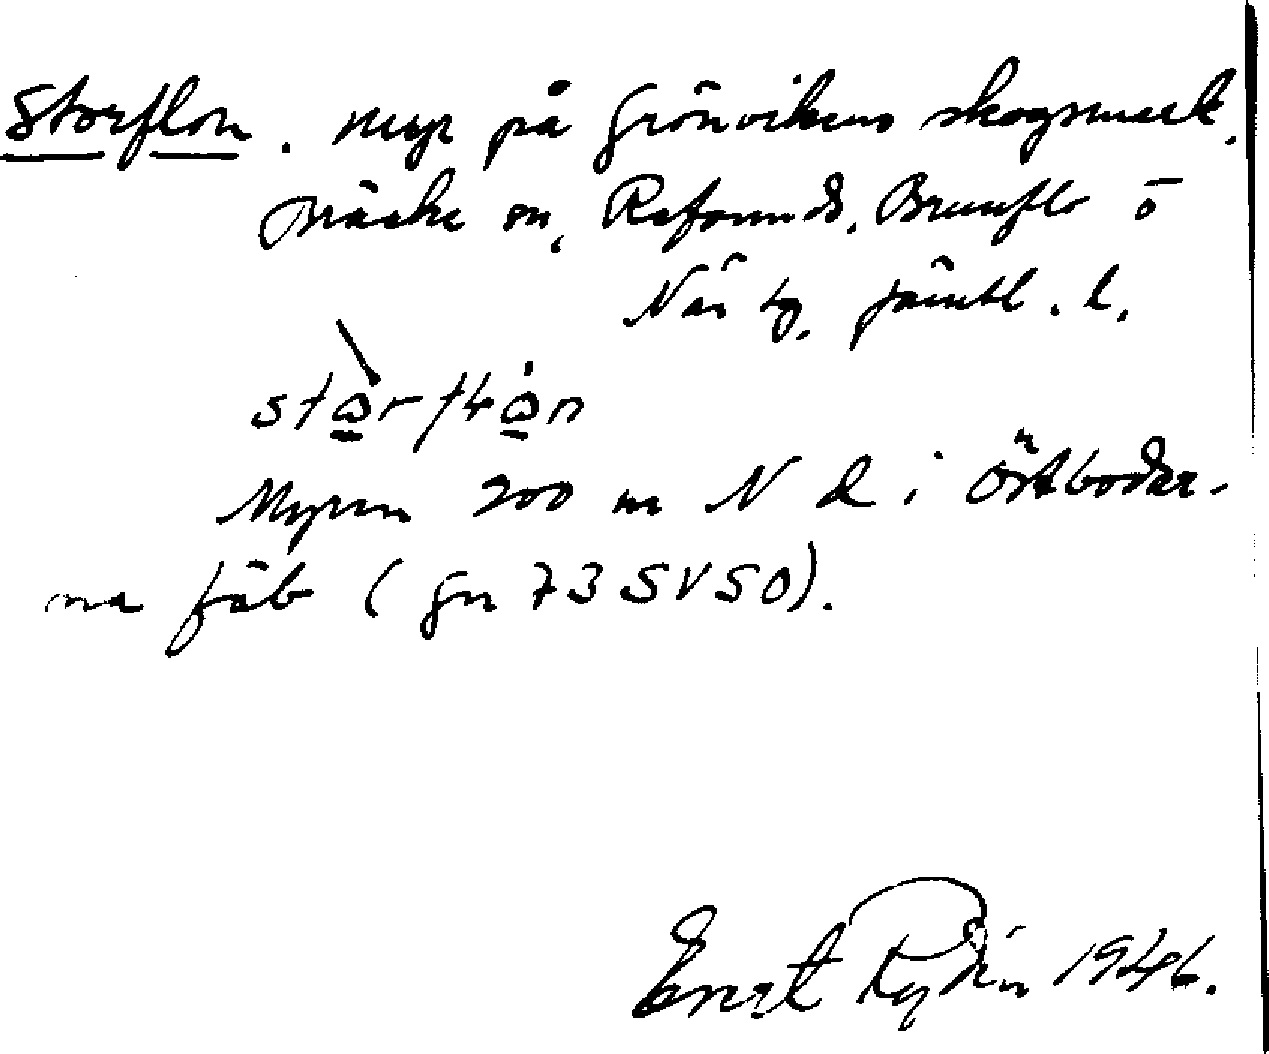 Storflon. myr på Grönvikens skogsmark.
Bräcke sn, Refsunds, Brunflo o
Näs tg. Jämtl. l.
stɷ̀rflɷ́n
Myren 200 m N d i Östbodar-
na fäb (gn 73 SVSO).
Ernst Rydin 1946.